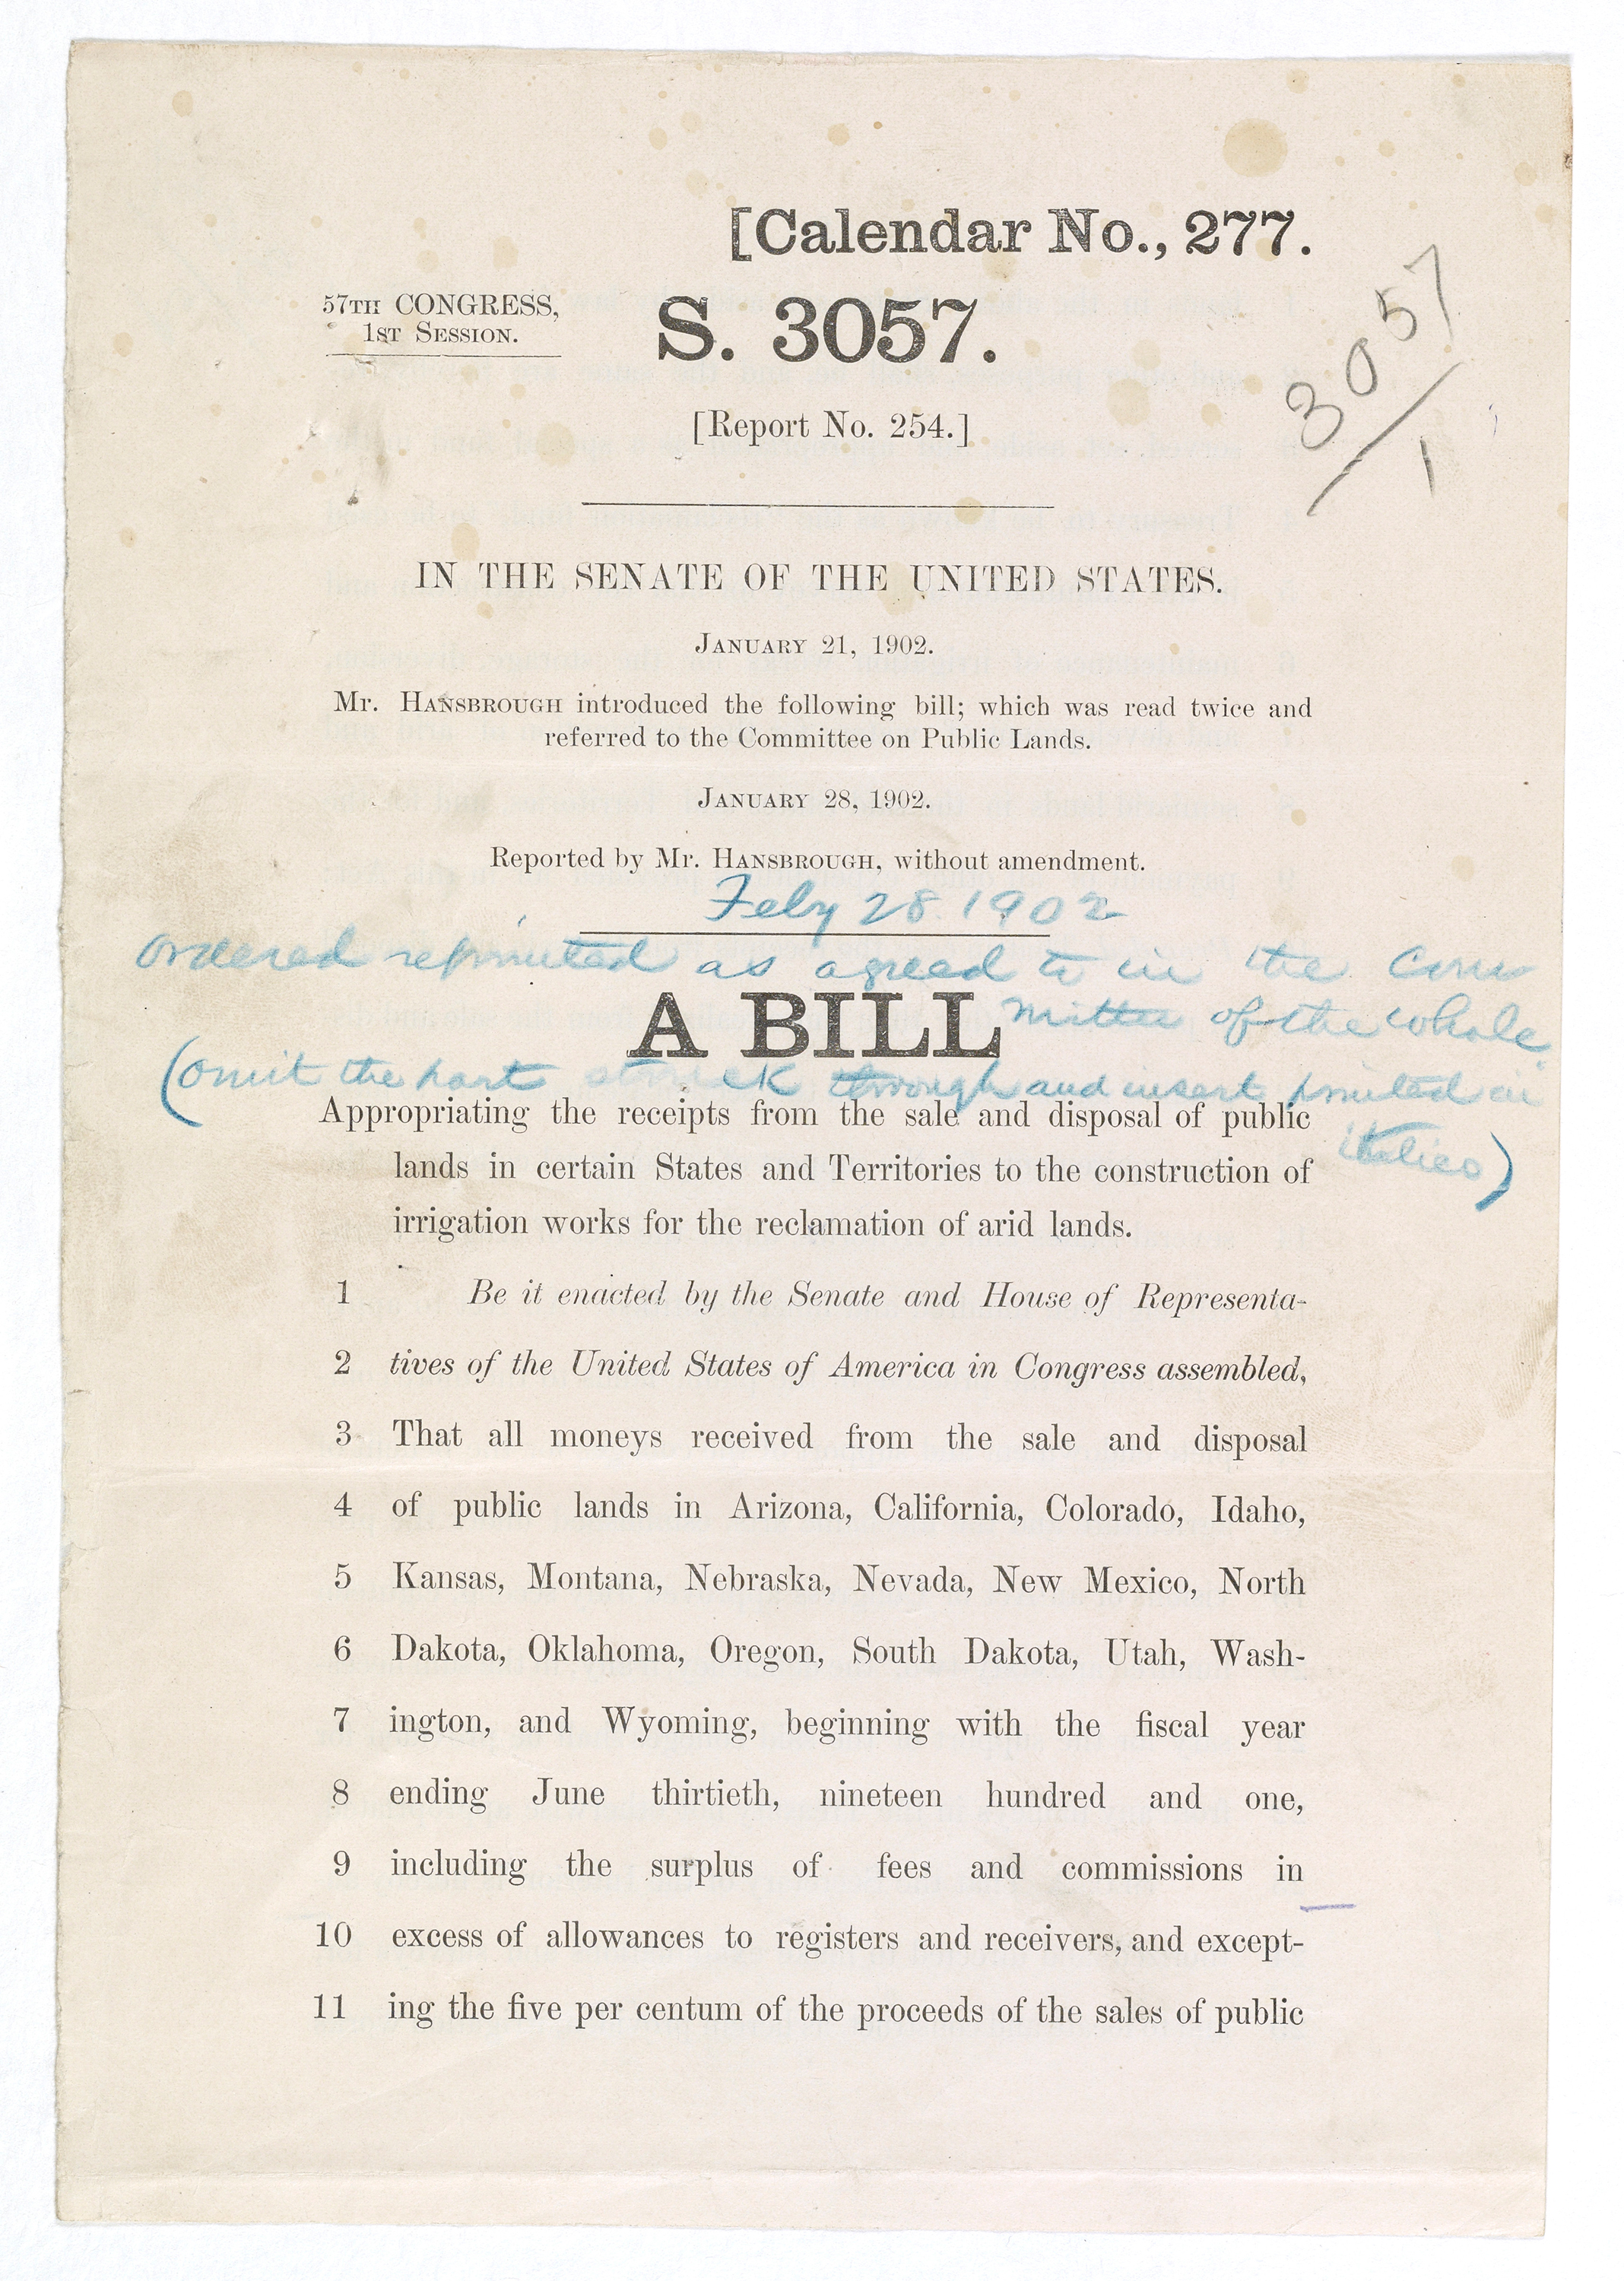 [Calendar No., 277.
57TH CONGRESS,
1ST SESSION.
S. 3057.
3057
1
[Report No. 254.]
IN THE SENATE OF THE UNITED STATES.
JANUARY 21, 1902.
Mr. HANSBROUGH introduced the following bill; which was read twice and
referred to the Committee on Public Lands.
JANUARY 28, 1902.
Reported by Mr. HANSBROUGH, without amendment.
Feby 28 1902
ordered reprinted as agreed to in the Com
mittee of the whole
A BILL
(omit the part struck through and insert printed in
italics)
Appropriating the receipts from the sale and disposal of public
lands in certain States and Territories to the construction of
irrigation works for the reclamation of arid lands.
1 Be it enacted by the Senate and House of Representa-
2 tives of the United States of America in Congress assembled,
3 That all moneys received from the sale and disposal
4 of public lands in Arizona, California, Colorado, Idaho,
5 Kansas, Montana, Nebraska, Nevada, New Mexico, North
6 Dakota, Oklahoma, Oregon, South Dakota, Utah, Wash-
7 ington, and Wyoming, beginning with the fiscal year
8 ending June thirtieth, nineteen hundred and one,
9 including the surplus of fees and commissions in
10 excess of allowances to registers and receivers, and except-
11 ing the five per centum of the proceeds of the sales of public